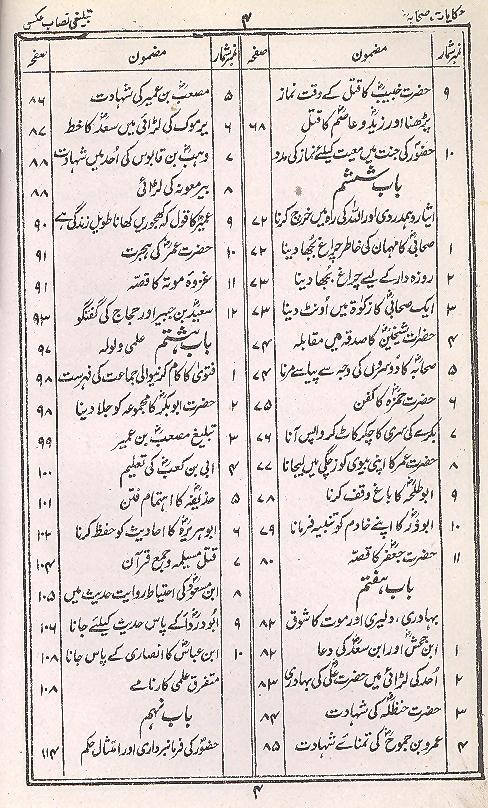 حکایات صحابہؓ
۴
تبلیغی نصاب عکسی
نمبر شمار مضمون صفحہ
۹ حضرت خبیبؓ کا قتل کے وقت نماز
پڑھنا اور زیدؓ و عاصمؓ کا قتل ۶۸
۱۰ حضورؐ کی جنت میں معیت کیلئے نماز کی مدد
باب ششم
ایثار و ہمدردی اور اللہ کی راہ میں خرچ کرنا ۷۲
۱ صحابیؓ کا مہمان کی خاطر چراغ بجھا دینا ۷۲
۲ روزہ دار کے لیے چراغ بجھا دینا ۷۳
۳ ایک صحابیؓ کا زکوٰۃ میں اونٹ دینا ۷۳
۴ حضرات شیخینؓ کا صدقہ میں مقابلہ ۷۴
۵ صحابہؓ کا دوسروں کی وجہ سے پیاسے مرنا ۷۴
۶ حضرت حمزہؓ کا کفن ۷۵
۷ بکرے کی سری کا چکر کاٹ کر واپس آنا ۷۶
۸ حضرت عمرؓ کا اپنی بیوی کو زچگی میں لیجانا ۷۷
۹ ابوطلحہؓ کا باغ وقف کرنا ۷۸
۱۰ ابوذرؓ کا اپنے خادم کو تنبیہ فرمانا ۷۹
۱۱ حضرت جعفرؓ کا قصہ ۸۰
باب ہفتم
بہادری، دلیری اور موت کا شوق ۸۲
۱ ابن جحشؓ اور ابن سعدؓ کی دعا ۸۲
۲ اُحد کی لڑائی میں حضرت علیؓ کی بہادری ۸۳
۳ حضرت حنظلہؓ کی شہادت ۸۴
۴ عمرو بن جموحؓ کی تمنائے شہادت ۸۵
نمبر شمار مضمون صفحہ
۵ مصعبؓ بن عمیر کی شہادت ۸۶
۶ یرموک کی لڑائی میں سعدؓ کا خط ۸۷
۷ وہبؓ بن قابوس کی اُحد میں شہادت ۸۸
۸ بیر معونہ کی لڑائی ۸۸
۹ عمیرؓ کا قول کہ کھجوریں کھانا طویل زندگی ہے ۹۰
۱۰ حضرت عمرؓ کی ہجرت ۹۱
۱۱ غزوہ موتہ کا قصّہ ۹۱
۱۲ سعیدؒ بن جبیر اور حجاج کی گفتگو ۹۳
باب ہشتم علمی ولولہ ۹۷
۱ فتویٰ کا کام کرنیوالی جماعت کی فہرست ۹۸
۲ حضرت ابوبکرؓ کا مجموعہ کو جلا دینا ۹۸
۳ تبلیغ مصعبؓ بن عمیر ۹۹
۴ ابی بن کعبؓ کی تعلیم ۱۰۰
۵ حذیفہؓ کا اہتمام فتن ۱۰۱
۶ ابوہریرہؓ کا احادیث کو حفظ کرنا ۱۰۲
۷ قتل مسیلمہ و جمع قرآن ۱۰۴
۸ ابن مسعودؓ کی احتیاط روایت حدیث میں ۱۰۵
۹ ابودرداءؓ کے پاس حدیث کیلئے جانا ۱۰۶
۱۰ ابن عباسؓ کا انصاری کے پاس جانا ۱۰۸
متفرق علمی کارنامے ۱۰۸
باب نہم
حضورؐ کی فرمانبرداری اور امتثال حکم ۱۱۴
۴